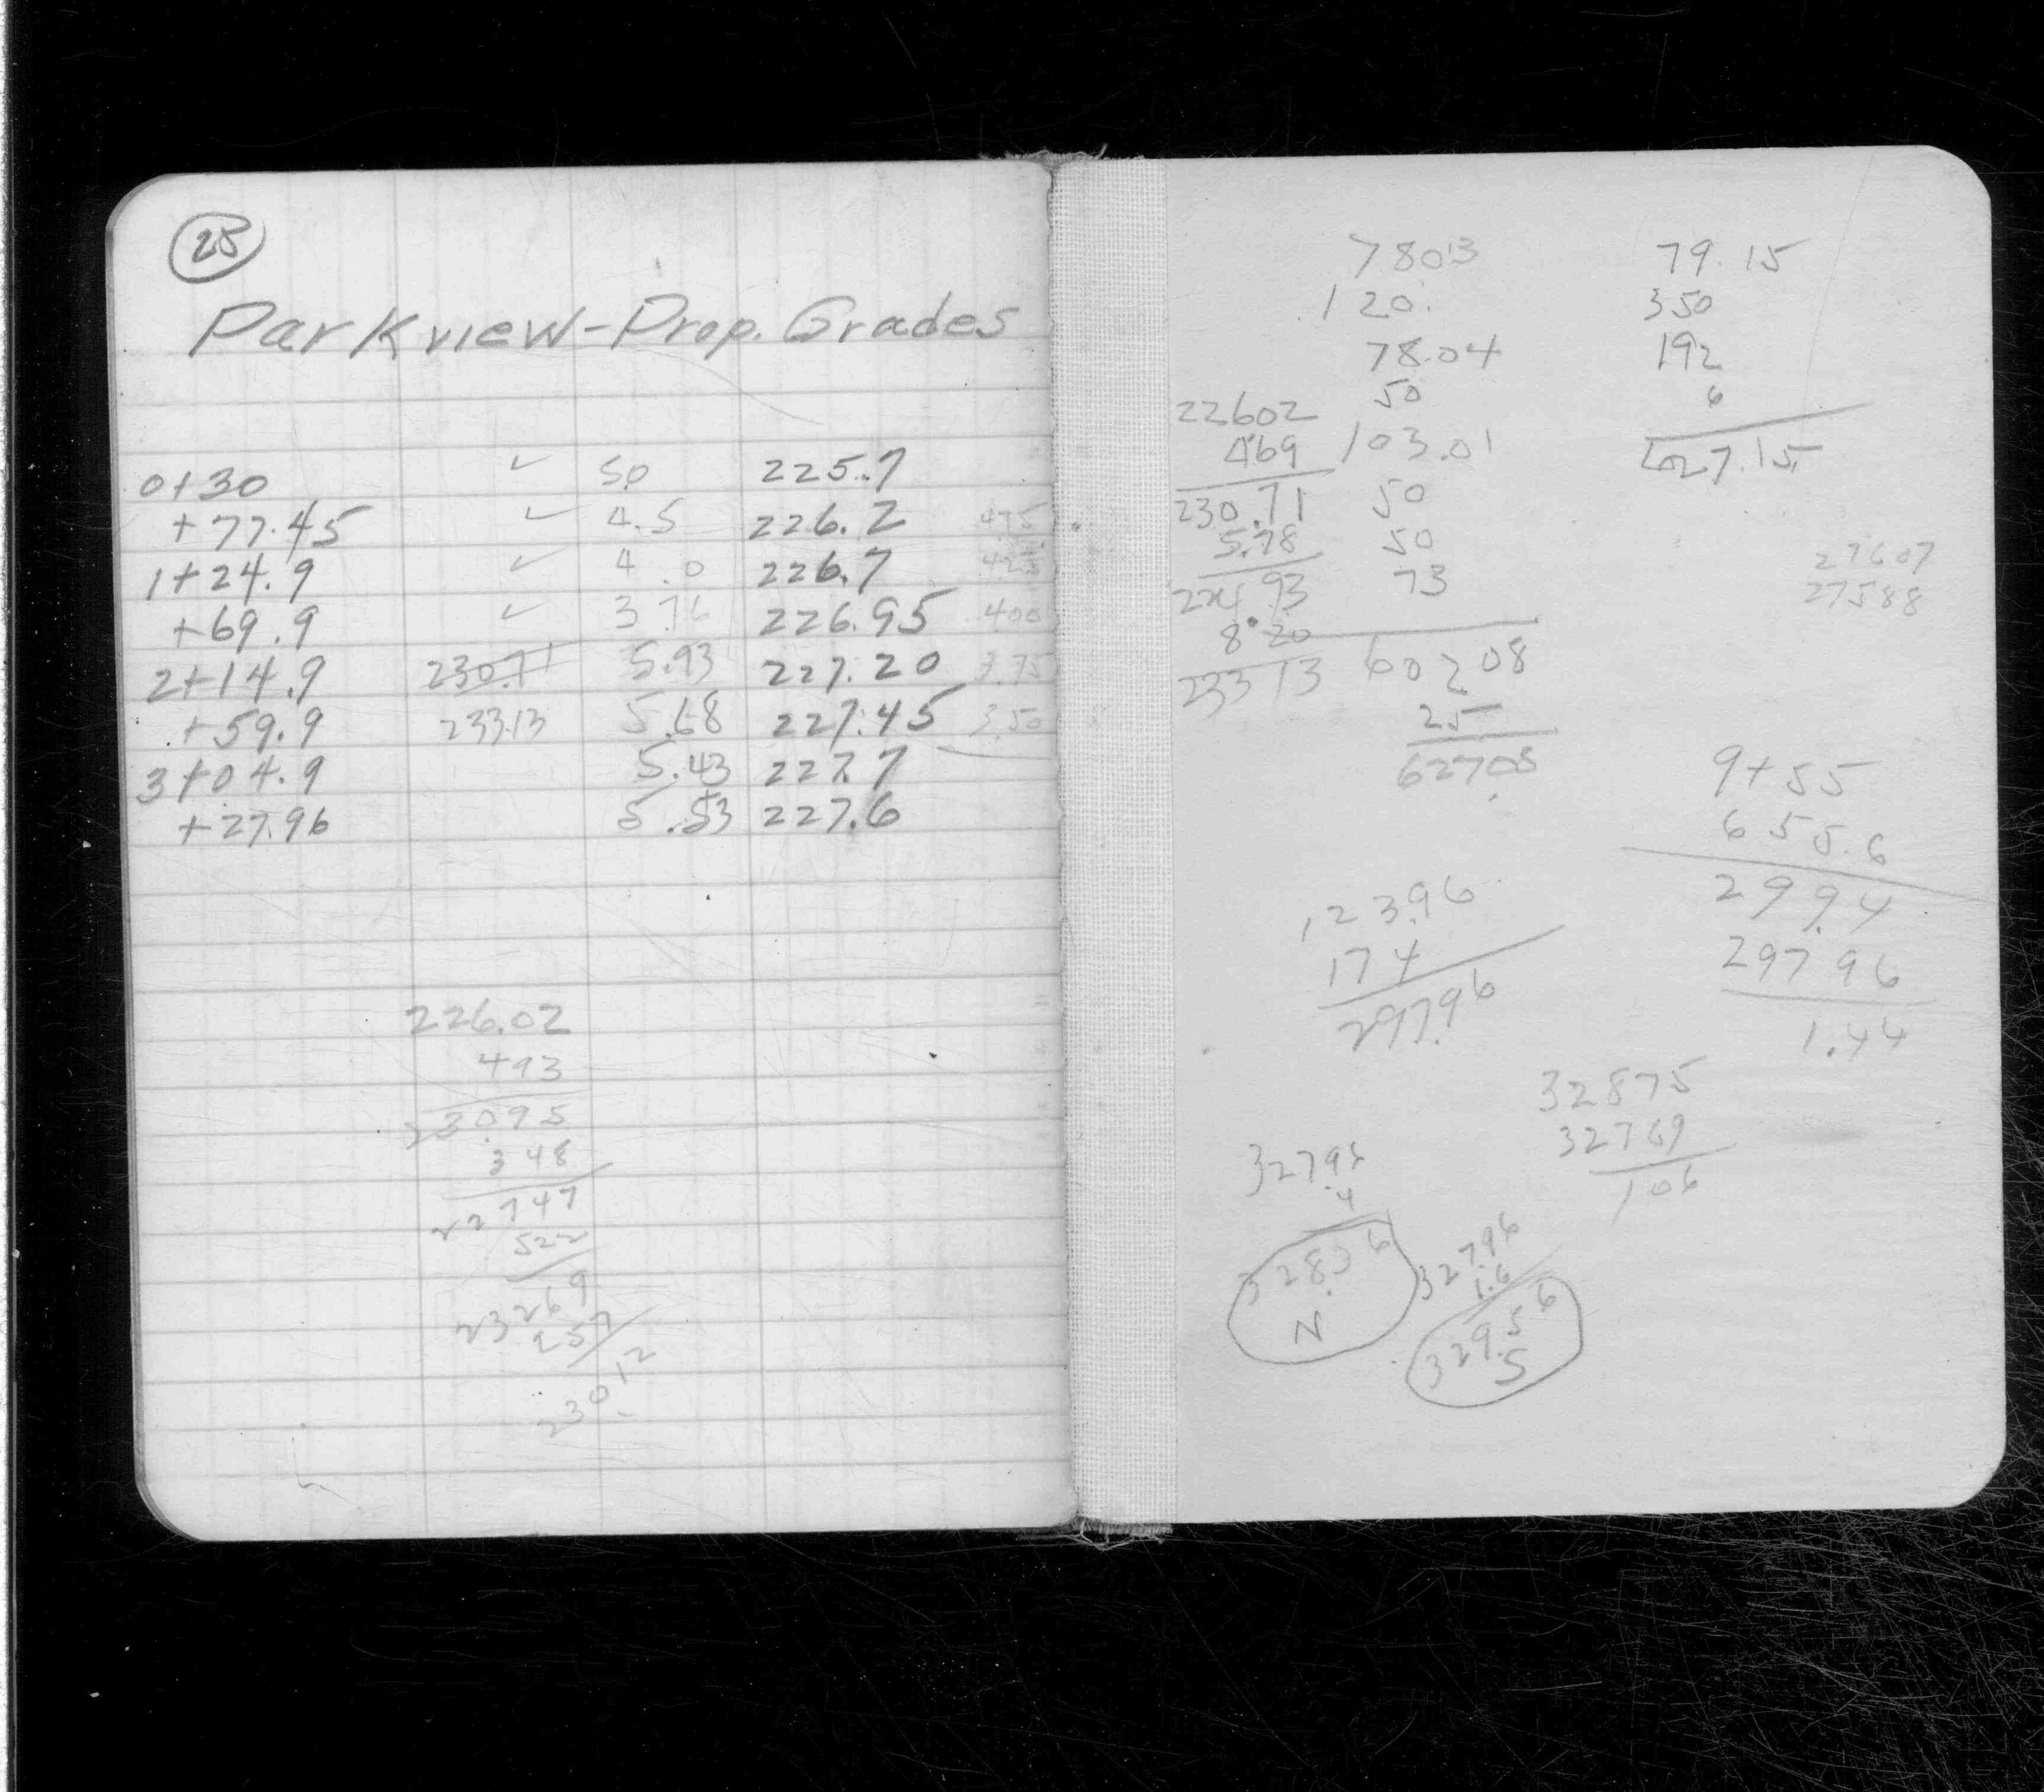 25
Parkview - Prop. Grades
0+30 ✓ 5.0 225.7
+77.45 ✓ 4.5 226.2 475
1+24.9 ✓ 4.0 226.7 425
+69.9 ✓ 3.76 226.95 400
2+14.9 230.71 5.93 227.20 3.75
+59.9 233.13 5.68 227.45 3.50
3+04.9 5.43 227.7
+27.96 5.53 227.6
226.02
493
230.95
348
22747
522
23269
257
230.12
7803
120.
78.04
50
103.01
50
50
73
60208
25
62708
22602
4.69
230.71
5.78
224.93
8.20
233 13
79.15
350
192
6
627.15
27607
27588
9+55
655.6
299.4
297 96
1.44
123.96
174
297.96
32875
32769
106
327.96
4
328.36
N
327.96
1.6
329.56
S